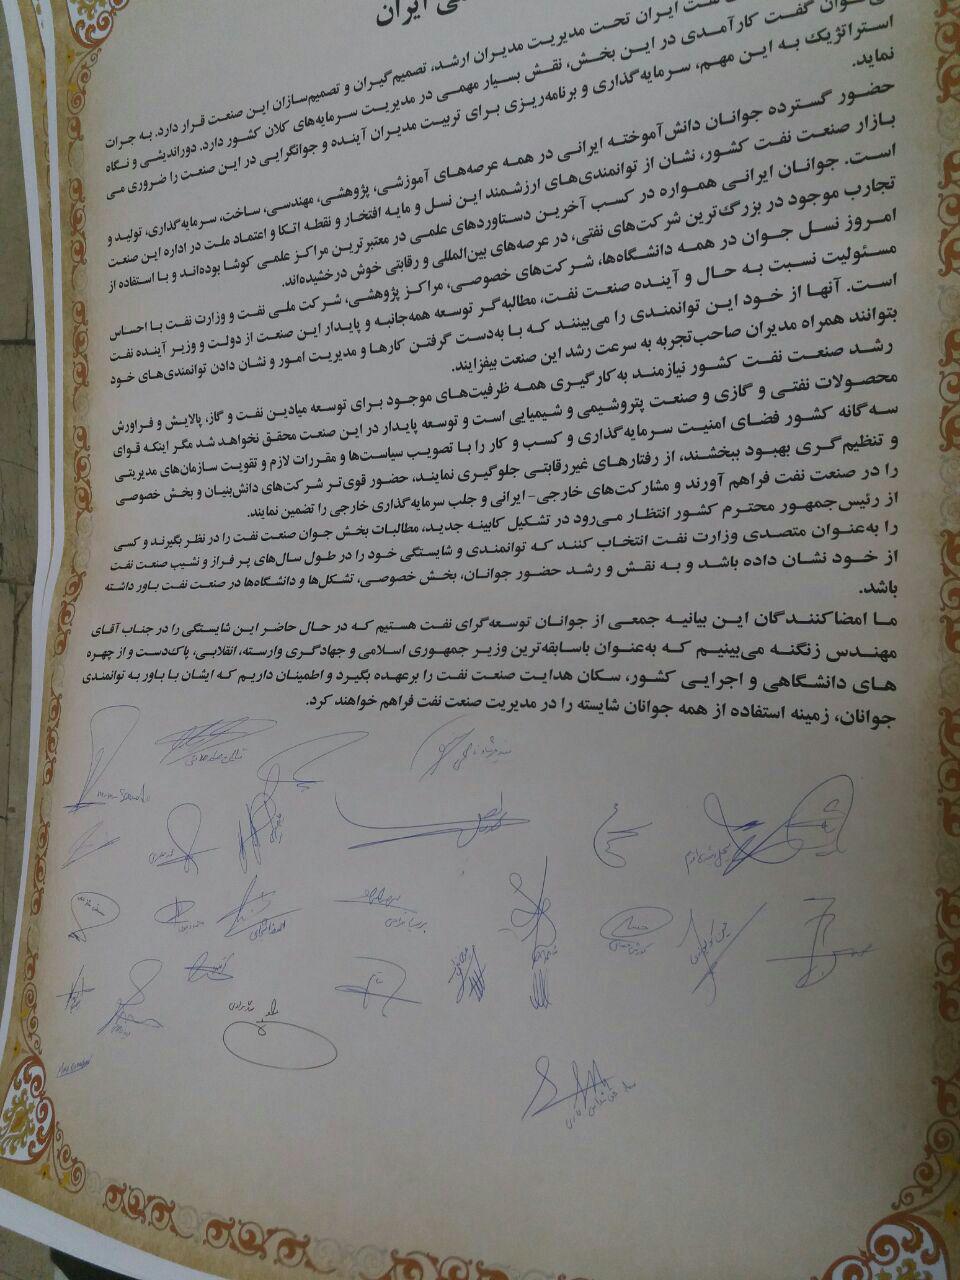 ایران
نفت ایران تحت مدیریت مدیران ارشد، تصمیم‌گیران و تصمیم‌سازان این صنعت قرار دارد. به جرات
گفت کارآمدی در این بخش، نقش بسیار مهمی در مدیریت سرمایه‌های کلان کشور دارد. دوراندیشی و نگاه
استراتژیک به این مهم، سرمایه‌گذاری و برنامه‌ریزی برای تربیت مدیران آینده و جوانگرایی در این صنعت را ضروری می
نماید.
حضور گسترده جوانان دانش‌آموخته ایرانی در همه عرصه‌های آموزشی، پژوهشی، مهندسی، ساخت، سرمایه‌گذاری، تولید و
بازار صنعت نفت کشور، نشان از توانمندی‌های ارزشمند این نسل و مایه افتخار و نقطه اتکا و اعتماد ملت در اداره این صنعت
است. جوانان ایرانی همواره در کسب آخرین دستاوردهای علمی در معتبرترین مراکز علمی کوشا بوده‌اند و با استفاده از
تجارب موجود در بزرگ‌ترین شرکت‌های نفتی، در عرصه‌های بین‌المللی و رقابتی خوش درخشیده‌اند.
امروز نسل جوان در همه دانشگاه‌ها، شرکت‌های خصوصی، مراکز پژوهشی، شرکت ملی نفت و وزارت نفت با احساس
مسئولیت نسبت به حال و آینده صنعت نفت، مطالبه‌گر توسعه همه‌جانبه و پایدار این صنعت از دولت و وزیر آینده نفت
است. آنها از خود این توانمندی را می‌بینند که با به‌دست گرفتن کارها و مدیریت امور و نشان دادن توانمندی‌های خود
بتوانند همراه مدیران صاحب‌تجربه به سرعت رشد این صنعت بیفزایند.
رشد صنعت نفت کشور نیازمند به‌کارگیری همه ظرفیت‌های موجود برای توسعه میادین نفت و گاز، پالایش و فراورش
محصولات نفتی و گازی و صنعت پتروشیمی و شیمیایی است و توسعه پایدار در این صنعت محقق نخواهد شد مگر اینکه قوای
سه‌گانه کشور فضای امنیت سرمایه‌گذاری و کسب و کار را با تصویب سیاست‌ها و مقررات لازم و تقویت سازمان‌های مدیریتی
و تنظیم‌گری بهبود ببخشند، از رفتارهای غیررقابتی جلوگیری نمایند، حضور قوی‌تر شرکت‌های دانش‌بنیان و بخش خصوصی
را در صنعت نفت فراهم آورند و مشارکت‌های خارجی-ایرانی و جلب سرمایه‌گذاری خارجی را تضمین نمایند.
از رئیس‌جمهور محترم کشور انتظار می‌رود در تشکیل کابینه جدید، مطالبات بخش جوان صنعت نفت را در نظر بگیرند و کسی
را به‌عنوان متصدی وزارت نفت انتخاب کنند که توانمندی و شایستگی خود را در طول سال‌های پر فراز و نشیب صنعت نفت
از خود نشان داده باشد و به نقش و رشد حضور جوانان، بخش خصوصی، تشکل‌ها و دانشگاه‌ها در صنعت نفت باور داشته
باشد.
ما امضاکنندگان این بیانیه جمعی از جوانان توسعه‌گرای نفت هستیم که در حال حاضر این شایستگی را در جناب آقای
مهندس زنگنه می‌بینیم که به‌عنوان باسابقه‌ترین وزیر جمهوری اسلامی و جهادگری وارسته، انقلابی، پاک‌دست و از چهره
های دانشگاهی و اجرایی کشور، سکان هدایت صنعت نفت را برعهده بگیرد و اطمینان داریم که ایشان با باور به توانمندی
جوانان، زمینه استفاده از همه جوانان شایسته را در مدیریت صنعت نفت فراهم خواهند کرد.